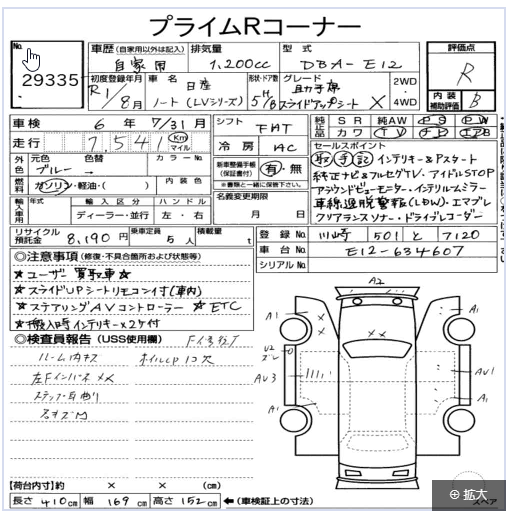 プライムRコーナー
No.
29335
車歴（自家用以外は記入）
自家用
排気量
1,200cc
型式
DBA-E12
評価点
R
初度登録年月
R1/8月
車名
日産
ノート（LVシリーズ）
形状・ドア数
5/HB
グレード
助手席
スライドアップシート X
2WD
4WD
内装
補助評価
B
車検
6年7/31月
シフト
FAT
純正 SR 純AW PS PW
社品 カワ TV ナビ エアB
走行
7,541
Km
マイル
冷房
AC
セールスポイント
取 手 記 インテリキー&Pスタート
純正ナビ&フルセグTV・アイドルSTOP
アラウンドビューモニター・インテリルームミラー
車線逸脱警報(LDW)・エマブレ
クリアランスソナー・ドライブレコーダー
外色
元色
ブルー
色替
→
カラーNo.
新車整備手帳
（保証書付）
有・無
※書類と一緒に保管下さい。
燃料
ガソリン・軽油・（ ）
内装色
名義変更期限
月 日
輸入車用
年式
輸入区分
ディーラー・並行
ハンドル
左・右
リサイクル預託金
8,190円
乗車定員
5人
積載量
t
登録No.
川崎 501 と 7120
車台No.
E12-634607
シリアルNo.
◎注意事項（修復・不具合箇所および状態等）
★ユーザー買取車☆
★スライドUPシートリモコン付（車内）
★ステアリングAVコントローラー ★ETC
★搬入時インテリキー×2ケ付
◎検査員報告（USS使用欄）
ルーム内キズ
A2
A1
A1
U2
AV3
AV1
A1
A1
スペア
【荷台内寸】約 × × （cm）
長さ 410cm 幅 169cm 高さ 152cm ←（車検証上の寸法）
拡大